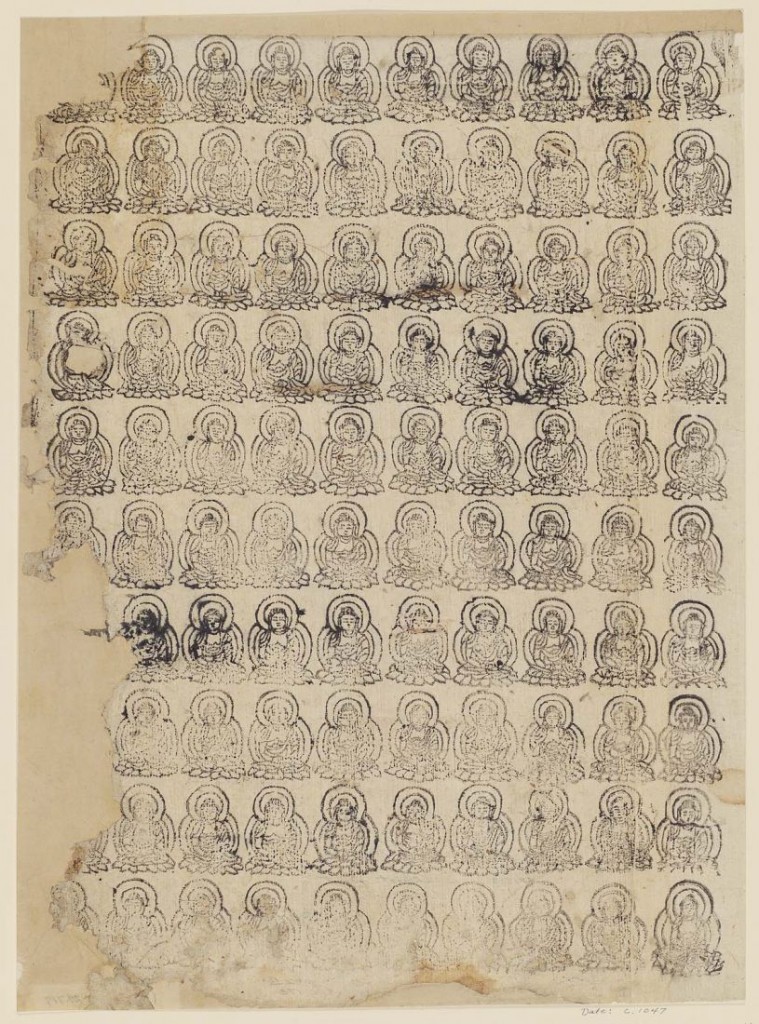 Date: c. 1047